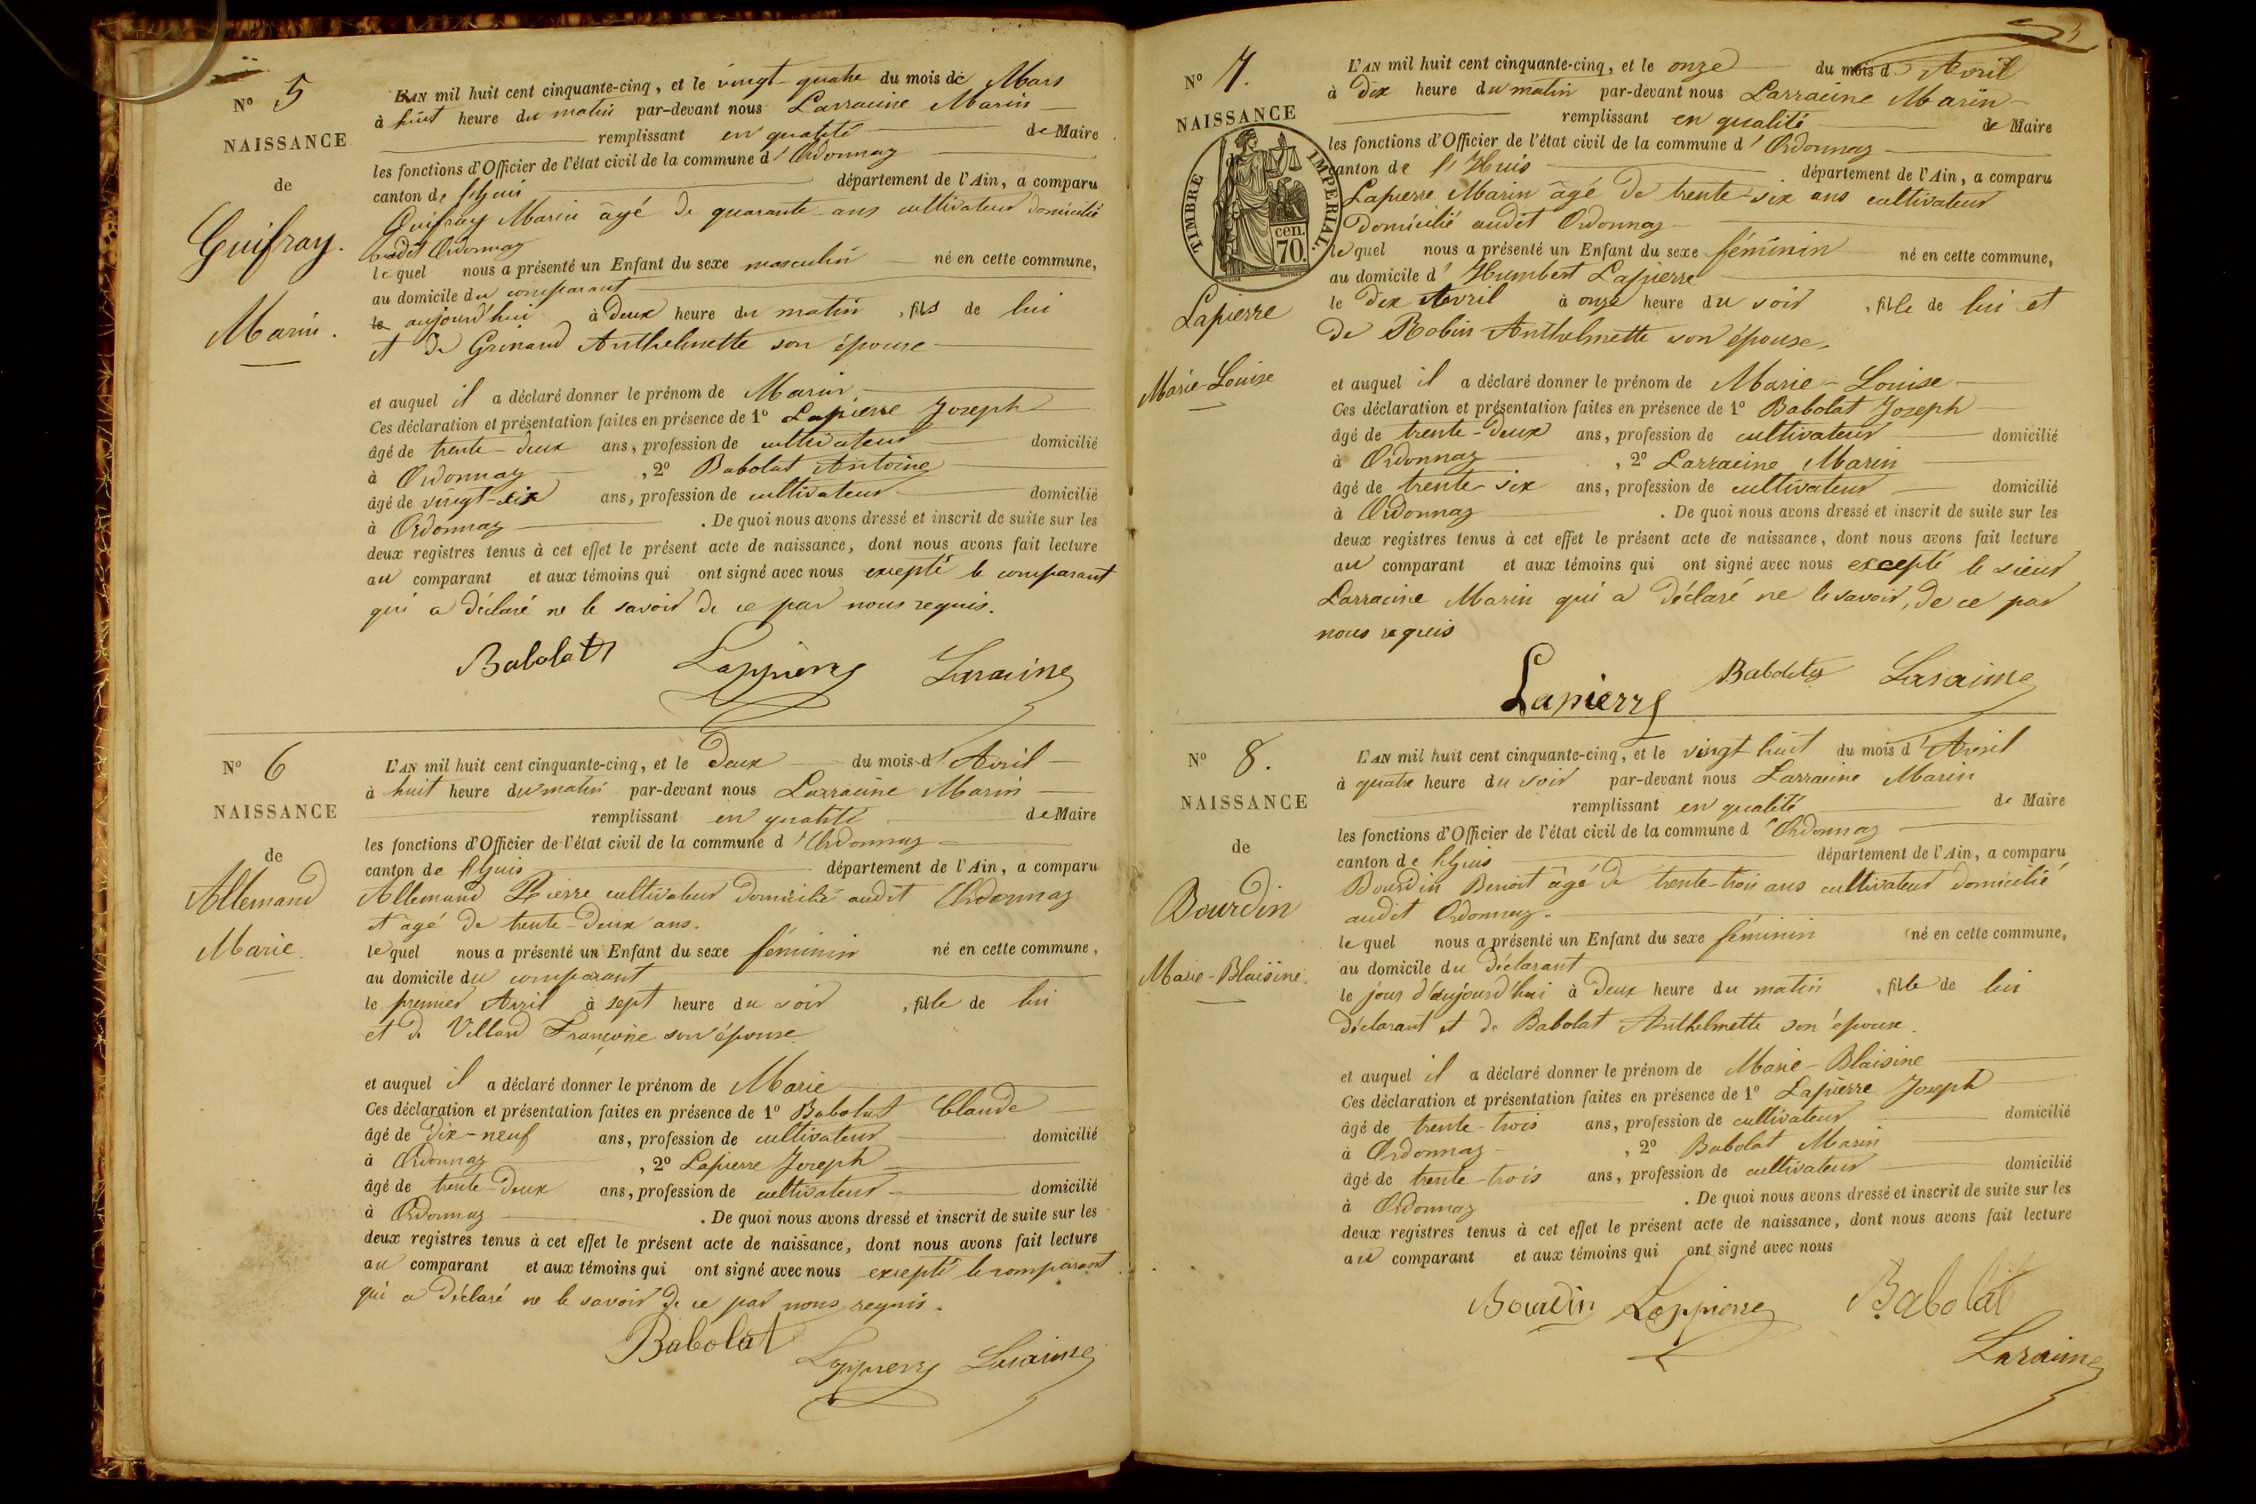 N° 5
NAISSANCE
de
Guifray.
Marin.
L'AN mil huit cent cinquante-cinq, et le vingt-quatre du mois de Mars
à huit heure du matin par-devant nous Larracine Marin
remplissant en qualité de Maire
les fonctions d'Officier de l'état civil de la commune d'Ordonnaz
canton de lhuis département de l'Ain, a comparu
Guifray Marin âgé de quarante ans cultivateur domicilié
audit Ordonnaz
lequel nous a présenté un Enfant du sexe masculin né en cette commune,
au domicile du comparant
le aujourd'hui à deux heure du matin, fils de lui
et de Grinand Anthelmette son épouse
et auquel il a déclaré donner le prénom de Marin
Ces déclaration et présentation faites en présence de 1° Lapierre Joseph
âgé de trente-deux ans, profession de cultivateur domicilié
à Ordonnaz, 2° Babolat Antoine
âgé de vingt-six ans, profession de cultivateur domicilié
à Ordonnaz. De quoi nous avons dressé et inscrit de suite sur les
deux registres tenus à cet effet le présent acte de naissance, dont nous avons fait lecture
au comparant et aux témoins qui ont signé avec nous excepté le comparant
qui a déclaré ne le savoir de ce par nous requis.
Babolat Lappierre Laraine
N° 6
NAISSANCE
de
Allemand
Marie.
L'AN mil huit cent cinquante-cinq, et le deux du mois d'Avril
à huit heure du matin par-devant nous Larracine Marin
remplissant en qualité de Maire
les fonctions d'Officier de l'état civil de la commune d'Ordonnaz
canton de lhuis département de l'Ain, a comparu
Allemand Pierre cultivateur domicilié audit Ordonnaz
et âgé de trente-deux ans.
lequel nous a présenté un Enfant du sexe féminin né en cette commune,
au domicile du comparant
le premier Avril à sept heure du soir, fille de lui
et de Villard Françoise son épouse
et auquel il a déclaré donner le prénom de Marie
Ces déclaration et présentation faites en présence de 1° Babolat Claude
âgé de dix-neuf ans, profession de cultivateur domicilié
à Ordonnaz, 2° Lapierre Joseph
âgé de trente-deux ans, profession de cultivateur domicilié
à Ordonnaz. De quoi nous avons dressé et inscrit de suite sur les
deux registres tenus à cet effet le présent acte de naissance, dont nous avons fait lecture
au comparant et aux témoins qui ont signé avec nous excepté le comparant
qui a déclaré ne le savoir de ce par nous requis.
Babolat Lappierre Laraine
N° 7.
NAISSANCE
TIMBRE IMPERIAL.
70. cen.
Lapierre
Marie-Louise
L'AN mil huit cent cinquante-cinq, et le onze du mois d'Avril
à dix heure du matin par-devant nous Larracine Marin
remplissant en qualité de Maire
les fonctions d'Officier de l'état civil de la commune d'Ordonnaz
canton de l'Huis département de l'Ain, a comparu
Lapierre Marin âgé de trente-six ans cultivateur
domicilié audit Ordonnaz
lequel nous a présenté un Enfant du sexe féminin né en cette commune,
au domicile d'Humbert Lapierre
le dix Avril à onze heure du soir, fille de lui et
de Robin Anthelmette son épouse,
et auquel il a déclaré donner le prénom de Marie-Louise
Ces déclaration et présentation faites en présence de 1° Babolat Joseph
âgé de trente-deux ans, profession de cultivateur domicilié
à Ordonnaz, 2° Larracine Marin
âgé de trente-six ans, profession de cultivateur domicilié
à Ordonnaz. De quoi nous avons dressé et inscrit de suite sur les
deux registres tenus à cet effet le présent acte de naissance, dont nous avons fait lecture
au comparant et aux témoins qui ont signé avec nous excepté le sieur
Larracine Marin qui a déclaré ne le savoir, de ce par
nous requis
Lapierre Babolat Laraine
N° 8.
NAISSANCE
de
Bourdin
Marie-Blaisine.
L'AN mil huit cent cinquante-cinq, et le vingt huit du mois d'Avril
à quatre heure du soir par-devant nous Larracine Marin
remplissant en qualité de Maire
les fonctions d'Officier de l'état civil de la commune d'Ordonnaz
canton de lhuis département de l'Ain, a comparu
Bourdin Benoit âgé de trente-trois ans cultivateur domicilié
audit Ordonnaz.
lequel nous a présenté un Enfant du sexe féminin né en cette commune,
au domicile du déclarant
le jour d'aujourd'hui à deux heure du matin, fille de lui
déclarant et de Babolat Anthelmette son épouse.
et auquel il a déclaré donner le prénom de Marie-Blaisine
Ces déclaration et présentation faites en présence de 1° Lapierre Joseph
âgé de trente-trois ans, profession de cultivateur domicilié
à Ordonnaz, 2° Babolat Marin
âgé de trente-trois ans, profession de cultivateur domicilié
à Ordonnaz. De quoi nous avons dressé et inscrit de suite sur les
deux registres tenus à cet effet le présent acte de naissance, dont nous avons fait lecture
au comparant et aux témoins qui ont signé avec nous
Bourdin Lappierre Babolat
Laraine